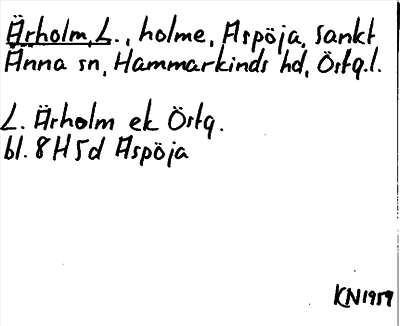 Ärholm, L., holme, Aspöja, Sankt
Anna sn, Hammarkinds hd, Östg.l.
L. Ärholm ek Östg.
bl. 8H5d Aspöja
KN1959